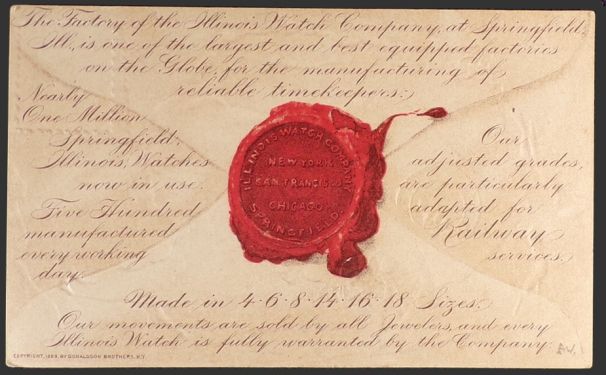 The Factory of the Illinois Watch Company, at Springfield,
Ill., is one of the largest and best equipped factories
on the Globe, for the manufacturing of
reliable timekeepers.
Nearly
One Million
Springfield,
Illinois, Watches
now in use.
Five Hundred
manufactured
every working
day.
ILLINOIS WATCH COMPANY
NEW YORK
SAN FRANCISCO
CHICAGO
SPRINGFIELD.
Our
adjusted grades,
are particularly
adapted for
Railway
services.
Made in 4·6·8·14·16·18 Sizes.
Our movements are sold by all Jewelers, and every
Illinois Watch is fully warranted by the Company.
COPYRIGHT, 1889, BY DONALDSON BROTHERS, N.Y.